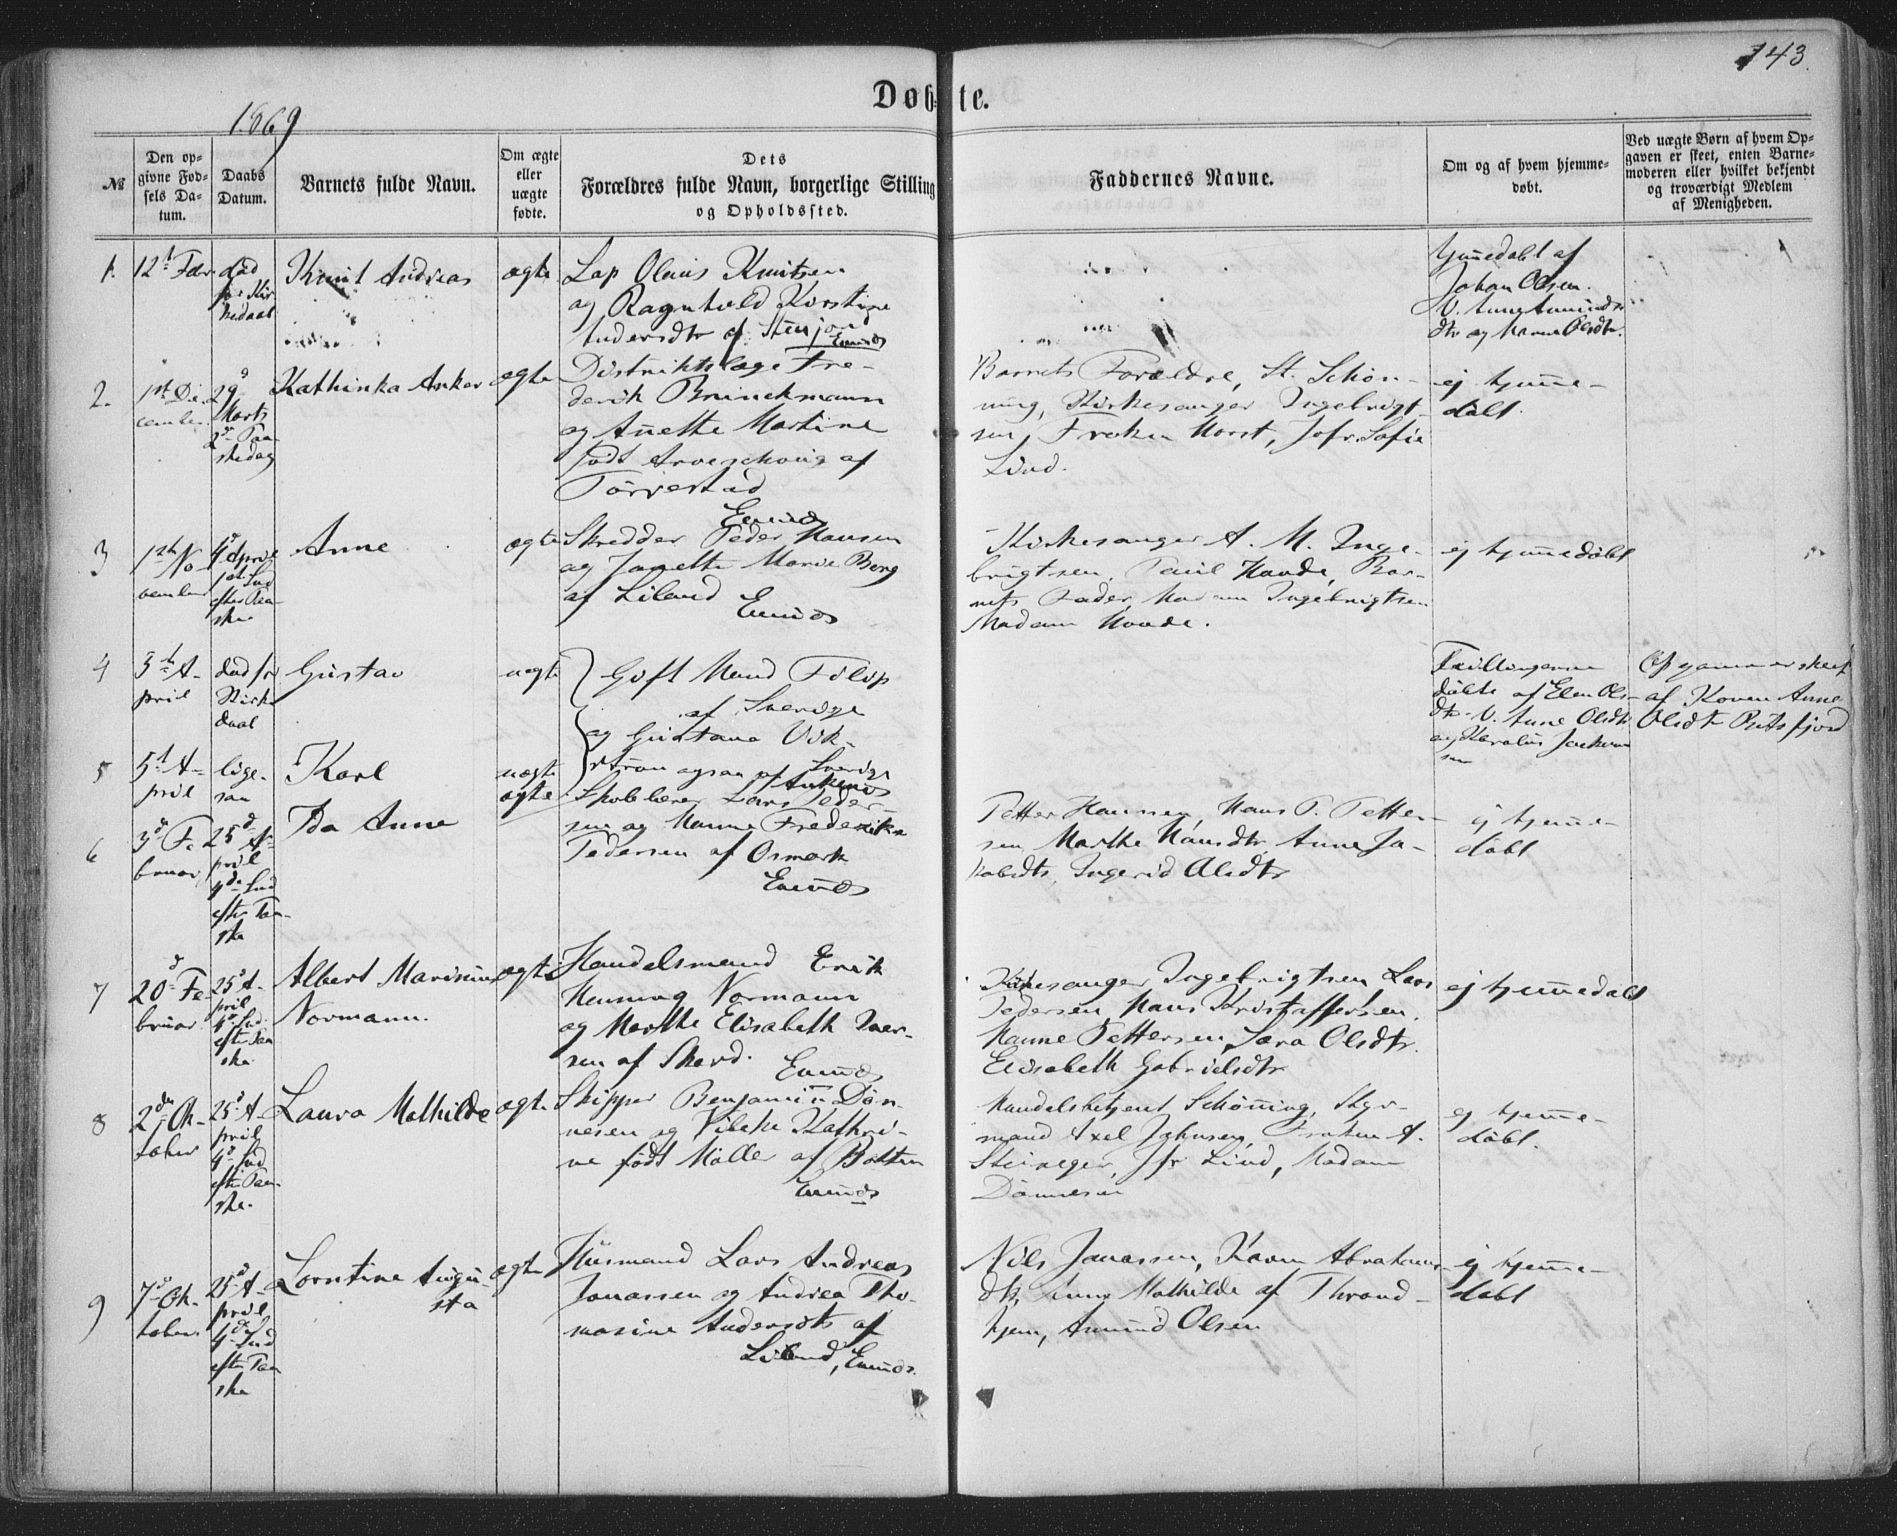 143.
Døbte.
1869
№
Den op-
givne Fød-
sels Da-
tum.
Daabs
Datum.
Barnets fulde Navn.
Om ægte
eller
uægte
fødte.
Dets
Forældres fulde Navn, borgerlige Stilling
og Opholdssted.
Faddernes Navne.
Om og af hvem hjemme-
døbt.
Ved uægte Børn af hvem Op-
gaven er skeet, enten Barne-
moderen eller hvilket bekjendt
og troværdigt Medlem
af Menigheden.
1.
12t
død
før Kir
kedaab
Knut Andreas
ægte
Lap Olaus Knutsen
og Ragnhild Kirstine
Andersdtr af
Evenæs
hjemedøbt af
Johan Olsen.
V. Anne
dtr og Hanne Olsdtr.
2.
1st De-
cember
29d
Marts
2d Paa-
skedag
Kathinka Anker
ægte
Distriktslæge Fre-
derik Brinckmann
og Anette Martine
født af
Evenæs
Barnets Forældre, St. Schøn-
ning, Kirkesanger Ingebrigt-
sen, Frøken Horst, Jofr. Sofie
Lind.
ej hjemme-
døbt.
3
1st No-
vember
4d April
1st Snd
efter Paa-
ske
Anne
ægte
Skredder Peder Hansen
og Janette Marie Berg
af Liland
Evenæs
Kirkesanger A. M. Inge-
brigtsen, Paul Haade, Bar-
nets Fader, Madam Ingebrigtsen
Madam Haade.
ej hjemmedøbt
4
3d A-
pril
død før
Kirke
daab
Gustav
uægte
Gift Mand Filip
af Sverige
og Gustava Vik-
strøm ogsaa af Sverige
Tvillingerne
døbte af Elen Ols-
dtr. V. Anne Olsdtr
og
sen
Opgaven er skeet
af Konen Anne
Olsdtr
5
5t A-
pril
lige-
saa
Karl
uægte
6
3d Fe
bruar
25d A-
pril
4de Snd
efter Paa-
ske
Ida Anne
ægte
Ankenæs
Skolelærer Lars Peder-
sen og Hanne Frederikke
Pedersen af Osmark
Evenæs
Petter Hansen, Hans P. Petter-
sen, Marthe Hansdtr, Anne Ja-
kobsdtr, Ingerid Olsdtr
ej hjemme-
døbt
7
20d Fe-
bruar
25d A-
pril
4d Snd.
efter Paa
ske
Albert Marinius
Normann.
ægte
Handelsmand Erik
Henning Normann
og Marthe Elisabeth Iver-
sen af Skard.
Evenæs
Kirkesanger Ingebrigtsen, Lars
Pedersen, Hans Kristoffersen,
Hanne Pettersen, Sara Olsdtr.
Elisabeth Gabrielsdtr
ej hjemmedøbt
8
2den Ok-
tober
25d A-
pril
4d Snd
efter Paa-
ske.
Laura Mathilde
ægte
Skipper Benjamin Døn-
nesen og Vibeke Kathri-
ne født Møller af Botten
Evenæs
Handelsbetjent Schønning, Styr-
mand Axel Johnsen, Frøken A.
Steineger, Jfr Lind, Madam
Dønnesen
ej hjemme-
døbt.
9
7d Ok-
tober
25d A-
pril
4de Snd
efter Paa
ske
Lorntine Augu-
sta
ægte
Husmand Lars Andreas
Jonassen og Andrea Tho-
masine Andersdtr af
Liland, Evenæs.
Nils Jonassen, Karen Abrahams-
dtr, Anne Mathilde af Thrond-
hjem, Amund Olsen
ej hjemme-
døbt